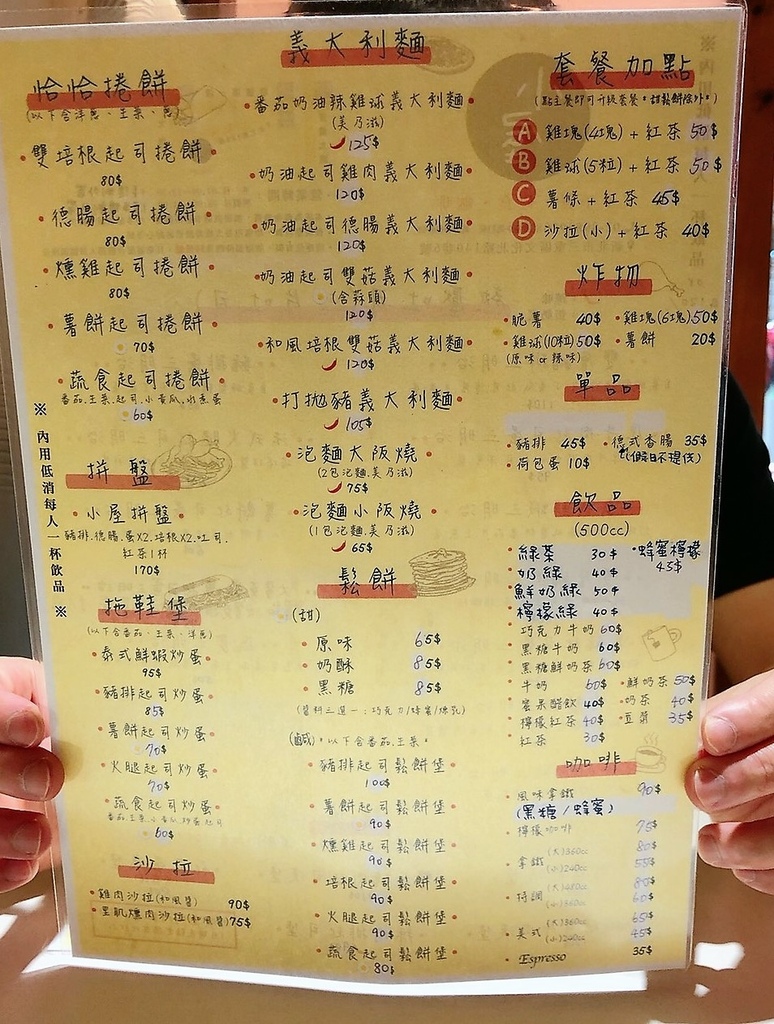 恰恰捲餅
(以下含洋蔥、生菜、蔥)
雙培根起司捲餅
80$
德腸起司捲餅
80$
燻雞起司捲餅
80$
薯餅起司捲餅
70$
蔬食起司捲餅
番茄.生菜.起司.小黃瓜.水煮蛋
60$
※ 內用低消每人一杯飲品 ※
拼盤
小屋拼盤
豬排.德腸.蛋X2.培根X2.吐司.
紅茶1杯
170$
拖鞋堡
(以下含番茄、生菜、洋蔥)
泰式鮮蝦炒蛋
95$
豬排起司炒蛋
85$
薯餅起司炒蛋
70$
火腿起司炒蛋
70$
蔬食起司炒蛋
60$
沙拉
雞肉沙拉(和風醬) 90$
里肌燻肉沙拉(和風醬) 75$
義大利麵
番茄奶油辣雞球義大利麵
(美乃滋)
125$
奶油起司雞肉義大利麵
120$
奶油起司德腸義大利麵
120$
奶油起司雙菇義大利麵
(含蒜頭)
120$
和風培根雙菇義大利麵
120$
打拋豬義大利麵
105$
泡麵大阪燒
(2包泡麵.美乃滋)
75$
泡麵小阪燒
(1包泡麵.美乃滋)
65$
鬆餅
(甜)
原味 65$
奶酥 85$
黑糖 85$
(醬料三選一:巧克力/蜂蜜/煉乳)
(鹹)*以下含番茄.生菜*
豬排起司鬆餅堡
100$
薯餅起司鬆餅堡
90$
燻雞起司鬆餅堡
90$
培根起司鬆餅堡
90$
火腿起司鬆餅堡
90$
蔬食起司鬆餅堡
80$
套餐加點
(點主餐即可升級套餐*甜鬆餅除外*)
A 雞塊(4塊)+紅茶 50$
B 雞球(5粒)+紅茶 50$
C 薯條+紅茶 45$
D 沙拉(小)+紅茶 40$
炸物
脆薯 40$ 雞塊(6塊)50$
雞球(10粒)50$ 薯餅 20$
(原味or辣味)
單品
豬排 45$ 德式香腸 35$
荷包蛋 10$ (假日不提供)
飲品
(500cc)
綠茶 30$ 蜂蜜檸檬
45$
奶綠 40$
鮮奶綠 50$
檸檬綠 40$
巧克力牛奶 60$
黑糖牛奶 60$
黑糖鮮奶茶 60$
牛奶 60$ 鮮奶茶 50$
蜜果醋飲 40$ 奶茶 40$
檸檬紅茶 40$ 豆漿 35$
紅茶 30$
咖啡
風味拿鐵 90$
(黑糖/蜂蜜)
檸檬咖啡 75$
拿鐵 (大)360cc 80$
(小)240cc 55$
特調 (大)480cc 80$
(小)360cc 60$
美式 (大)360cc 65$
(小)240cc 45$
Espresso 35$